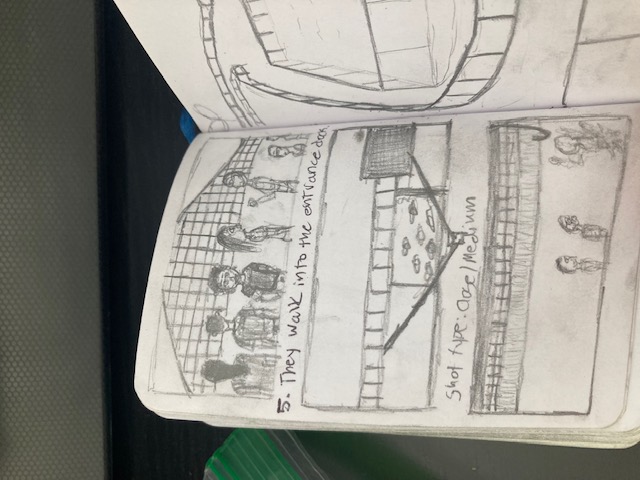 5. They walk into the entrance
Shot type: Close/Medium